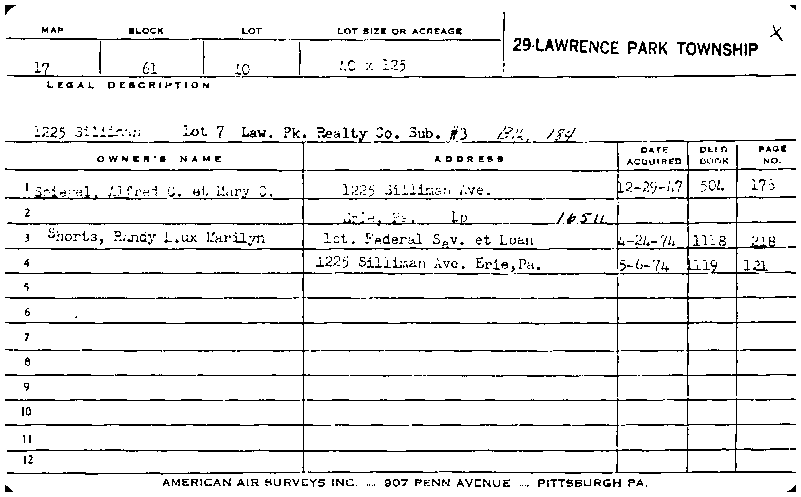 MAP BLOCK LOT LOT SIZE OR ACREAGE
29-LAWRENCE PARK TOWNSHIP X
17 61 10 40 x 125
LEGAL DESCRIPTION
1225 Silliman Lot 7 Law. Pk. Realty Co. Sub. #3 184
OWNER'S NAME ADDRESS DATE ACQUIRED DEED BOOK PAGE NO.
1 Alfred C. et Mary C. 1225 Silliman Ave. 12-29-47 504 173
2 Erie, Pa. Lp 16511
3 Shorts, Randy L.ux Marilyn 1st. Federal Sav. et Loan 4-24-74 1118 218
4 1225 Silliman Ave. Erie,Pa. 5-6-74 1119 121
5
6
7
8
9
10
11
12
AMERICAN AIR SURVEYS INC. .... 907 PENN AVENUE .... PITTSBURGH PA.